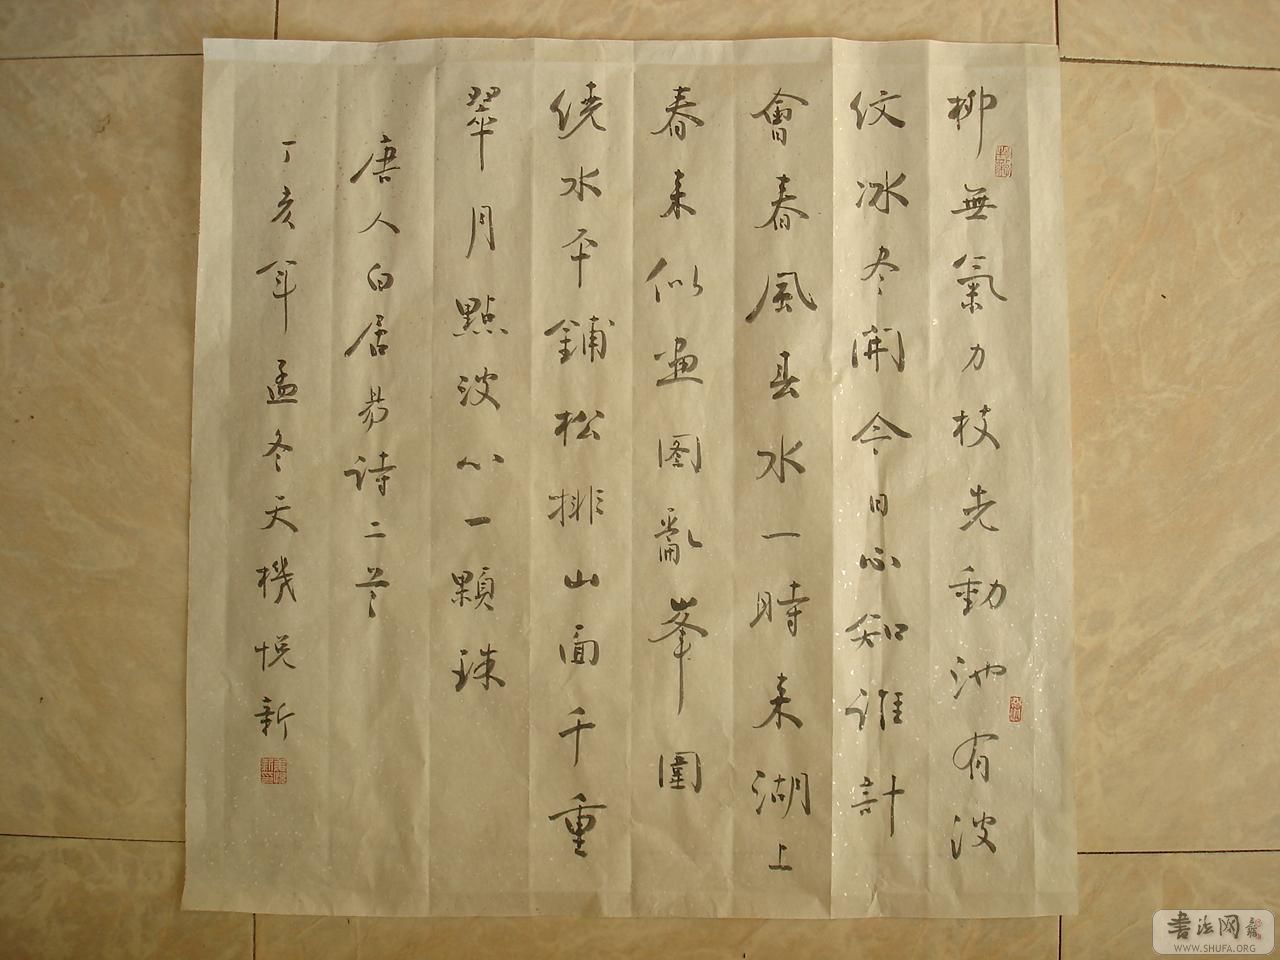 柳無氣力枝先動池有波
纹冰尽開今日不知谁計
會春風春水一時来湖上
春来似画图亂峯圍
绕水平鋪松排山面千重
翠月點波心一顆珠
唐人白居易诗二首
丁亥年孟冬天機悦新
書法网
WWW.SHUFA.ORG